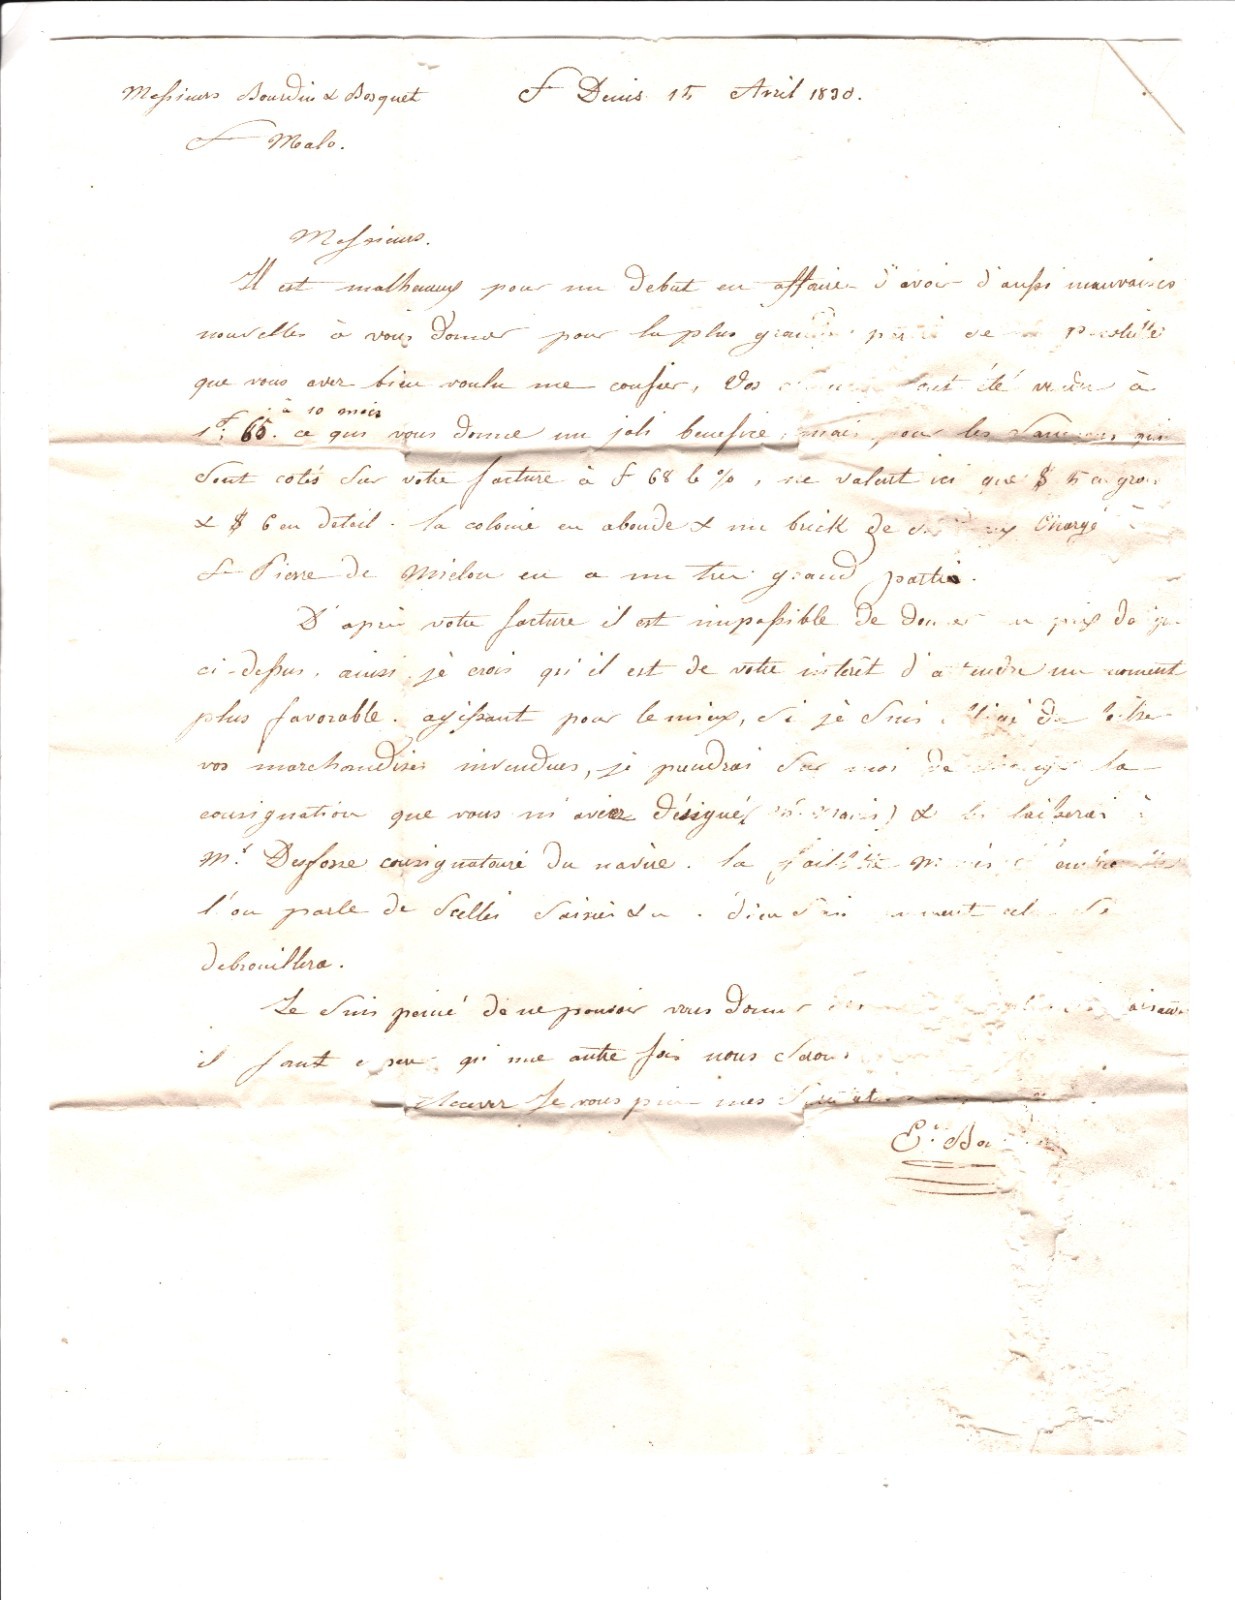 Messieurs Bourdin & Bosquet St Denis 15 Avril 1830.
St Malo.
Messieurs.
Il est malheureux pour un debut en affaire d'avoir d'aussi mauvaises
nouvelles à vous donner pour la plus grande partie de la pacotille
que vous avez bien voulu me confier, Vos ont été vendu à
à 10 mois
1f. 65. ce qui vous donne un joli benefice, mais pour les qui
sont cotés sur votre facture à f 68 le %, ne valent ici que $ 5 en gros
& $ 6 en detail. la colonie en abonde & un brick de chargé à
St Pierre de Miclon en a un tres grand partie.
D'après votre facture il est impossible de donner au prix designé
ci-dessus. ainsi je crois qu'il est de votre interêt d'attendre un moment
plus favorable. agissant pour le mieux, si je suis obligé de laisser
vos marchandises invendues, je prendrai sur moi de changer la
consignation que vous m'aviez désigné & les laisserai à
Mr. Desfosse consignataire du navire. la faillite
l'on parle de scellés saisies &a. dieu sait comment cela se
debrouillera.
Je suis peiné de ne pouvoir vous donner
il faut esperer qu'une autre fois nous serons
Recevez Je vous prie mes
E. Bo